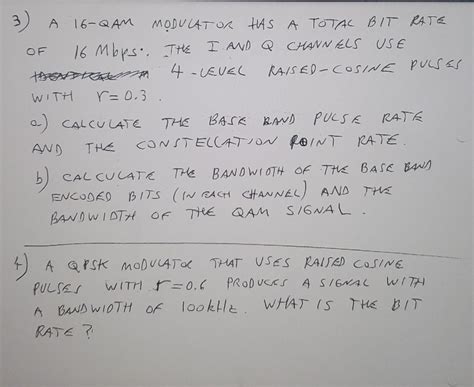 3) A 16-QAM MODULATOR HAS A TOTAL BIT RATE
OF 16 Mbps. THE I AND Q CHANNELS USE
4-LEVEL RAISED-COSINE PULSES
WITH r=0.3.
a) CALCULATE THE BASE BAND PULSE RATE
AND THE CONSTELLATION POINT RATE.
b) CALCULATE THE BANDWIDTH OF THE BASE BAND
ENCODED BITS (IN EACH CHANNEL) AND THE
BANDWIDTH OF THE QAM SIGNAL.
4) A QPSK MODULATOR THAT USES RAISED COSINE
PULSES WITH r=0.6 PRODUCES A SIGNAL WITH
A BANDWIDTH OF 100kHz. WHAT IS THE BIT
RATE?